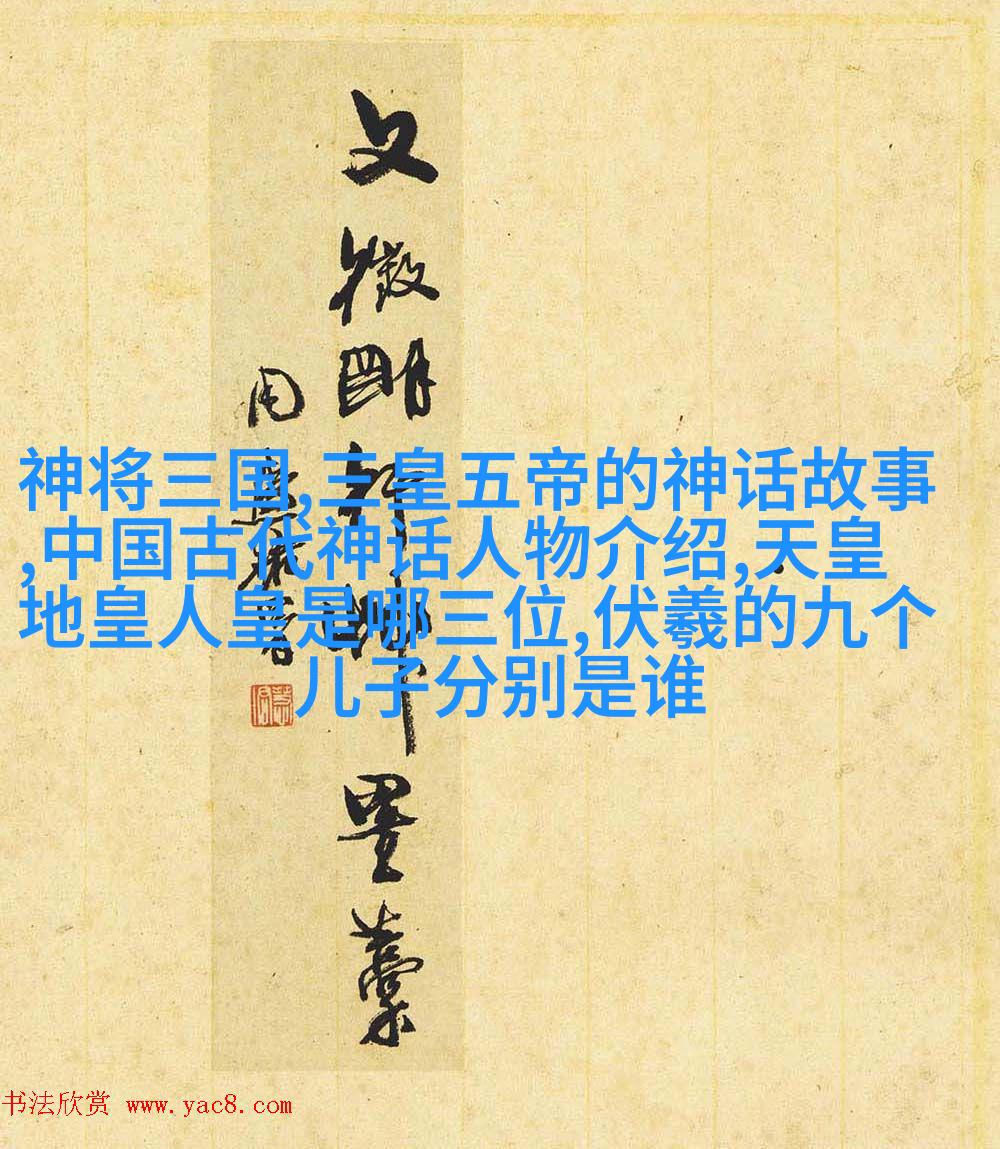 文徵明詩
墨藁
神将三国,三皇五帝的神话故事
,中国古代神话人物介绍,天皇
地皇人皇是哪三位,伏羲的九个
儿子分别是谁
书法欣赏 www.yac8.com